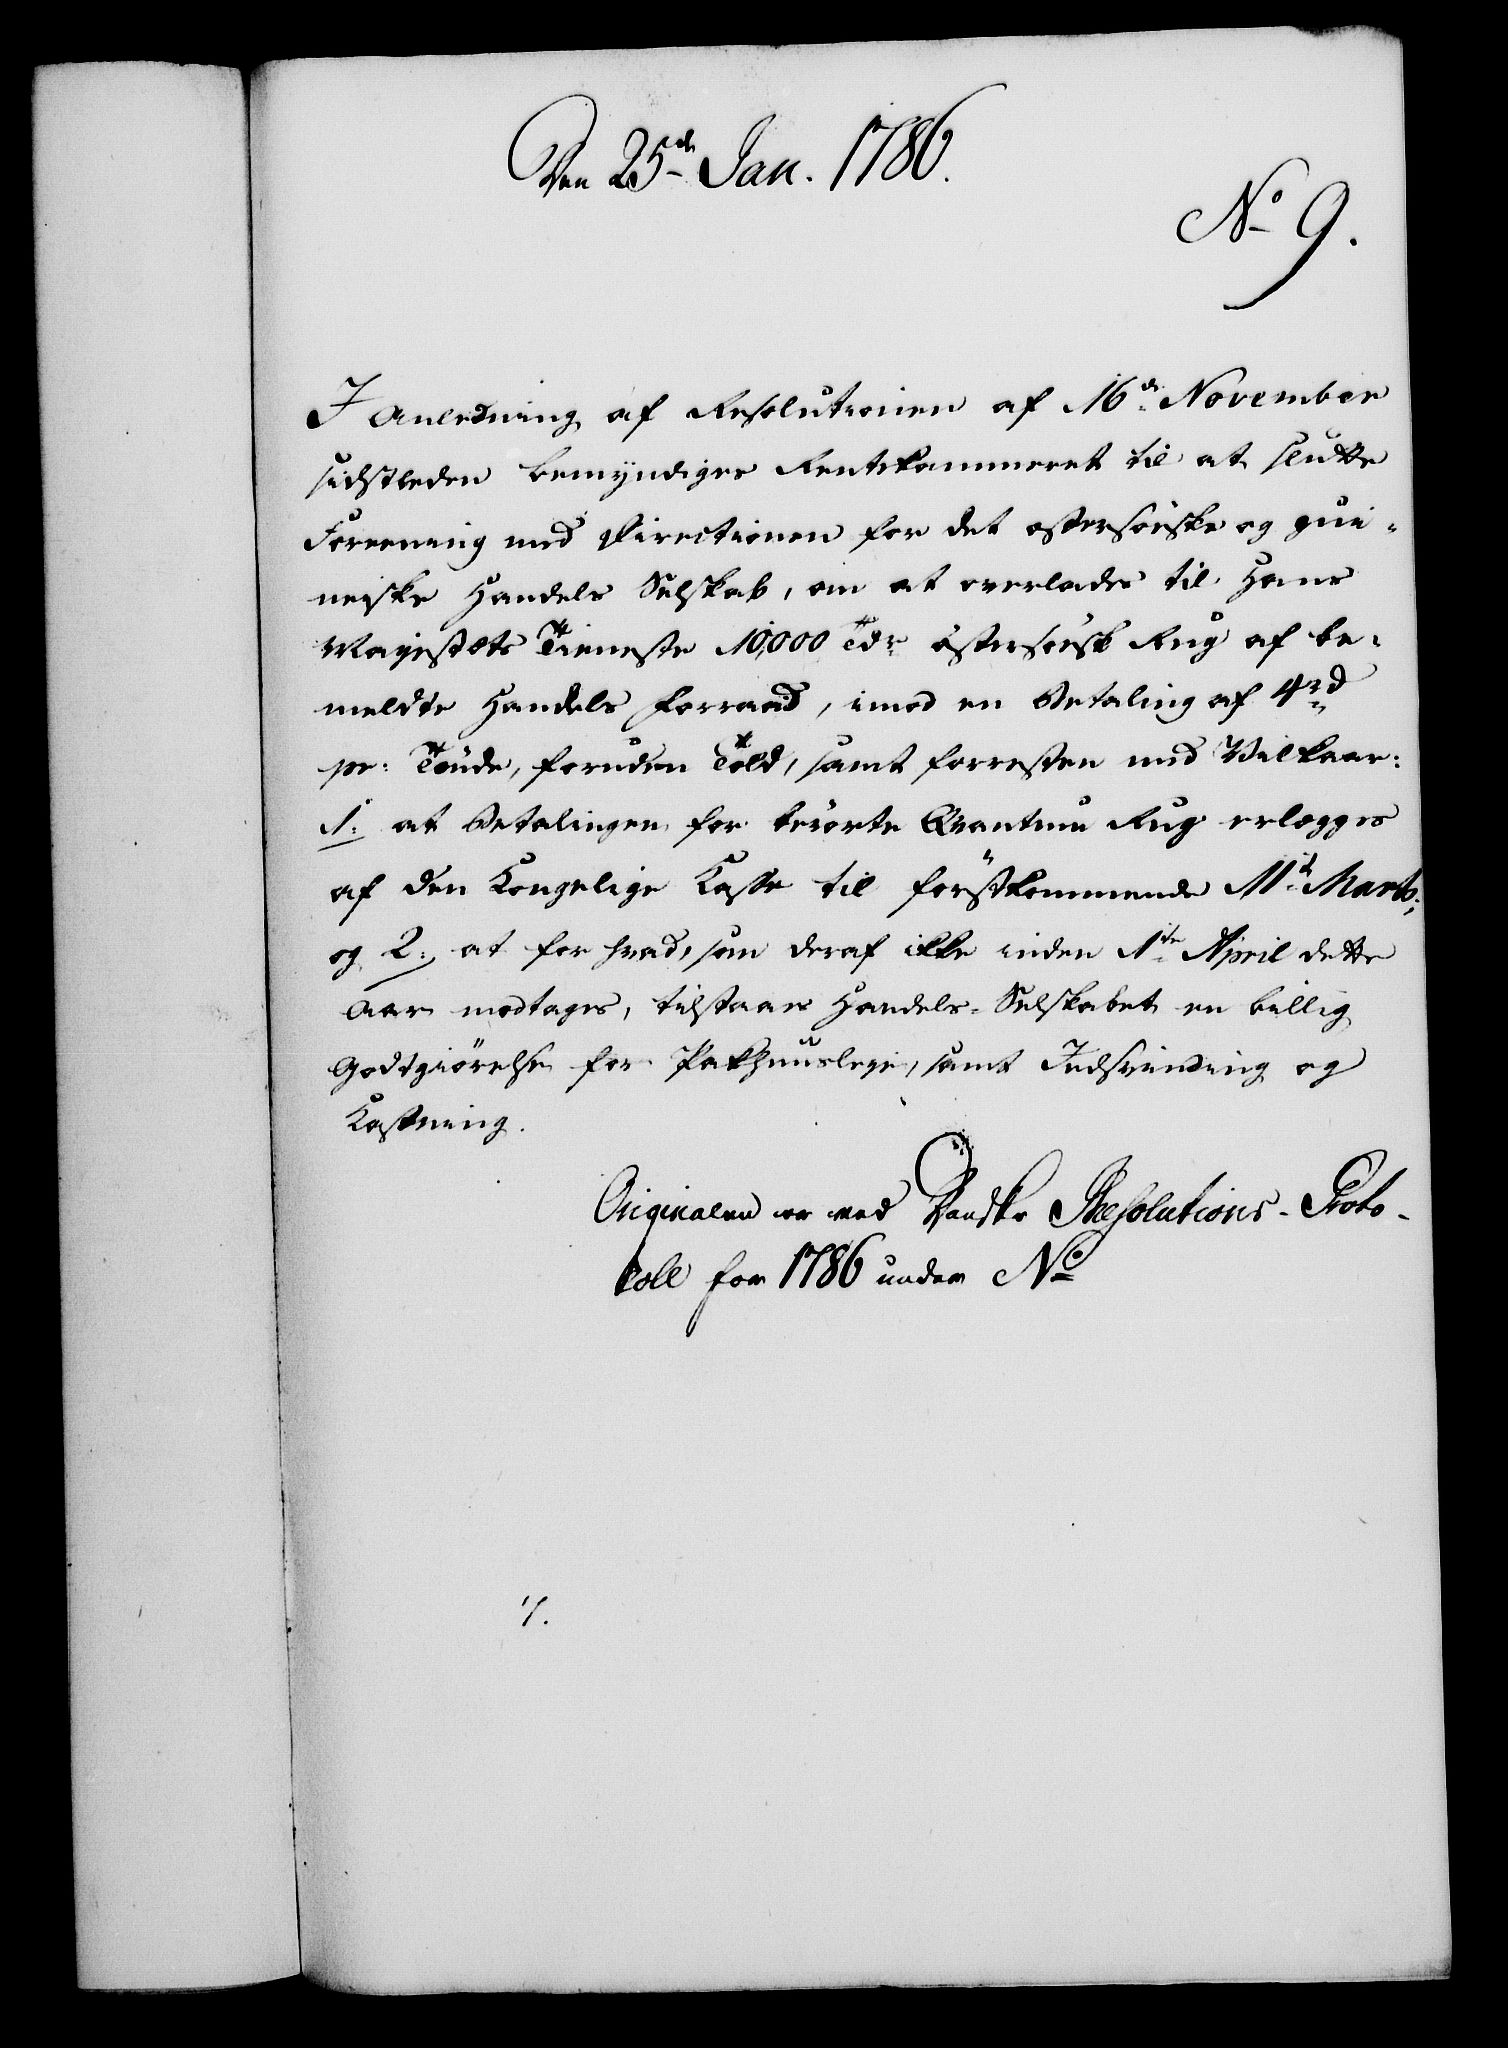 Den 25de Jan. 1786.
No 9.
I Anledning af Resolutionen af 16de November
sidstleden bemyndiges Rentekammeret til at slutte
Foreening med Directionen for det østersøiske og gui-
neiske Handels Selskab, om at overlades til Hans
Majestæts Tieneste 10,000 Tdr østersøisk Rug af be-
meldte Handels Forraad, imod en Betaling af 4 rd
pr: Tønde, foruden Told, samt forresten med Vilkaar:
1: at Betalingen for berørte Qvantum Rug erlægges
af den Kongelige Kasse til førstkommende 11te Marts;
og 2: at for hvad, som deraf ikke inden 1te April dette
Aar modtages, tilstaaes Handels-Selskabet en billig
Godtgiørelse for Pakhuusleje, samt Indsvinding og
Kastning.
Originalen er ved Danske Resolutions-Proto-
coll for 1786 under No